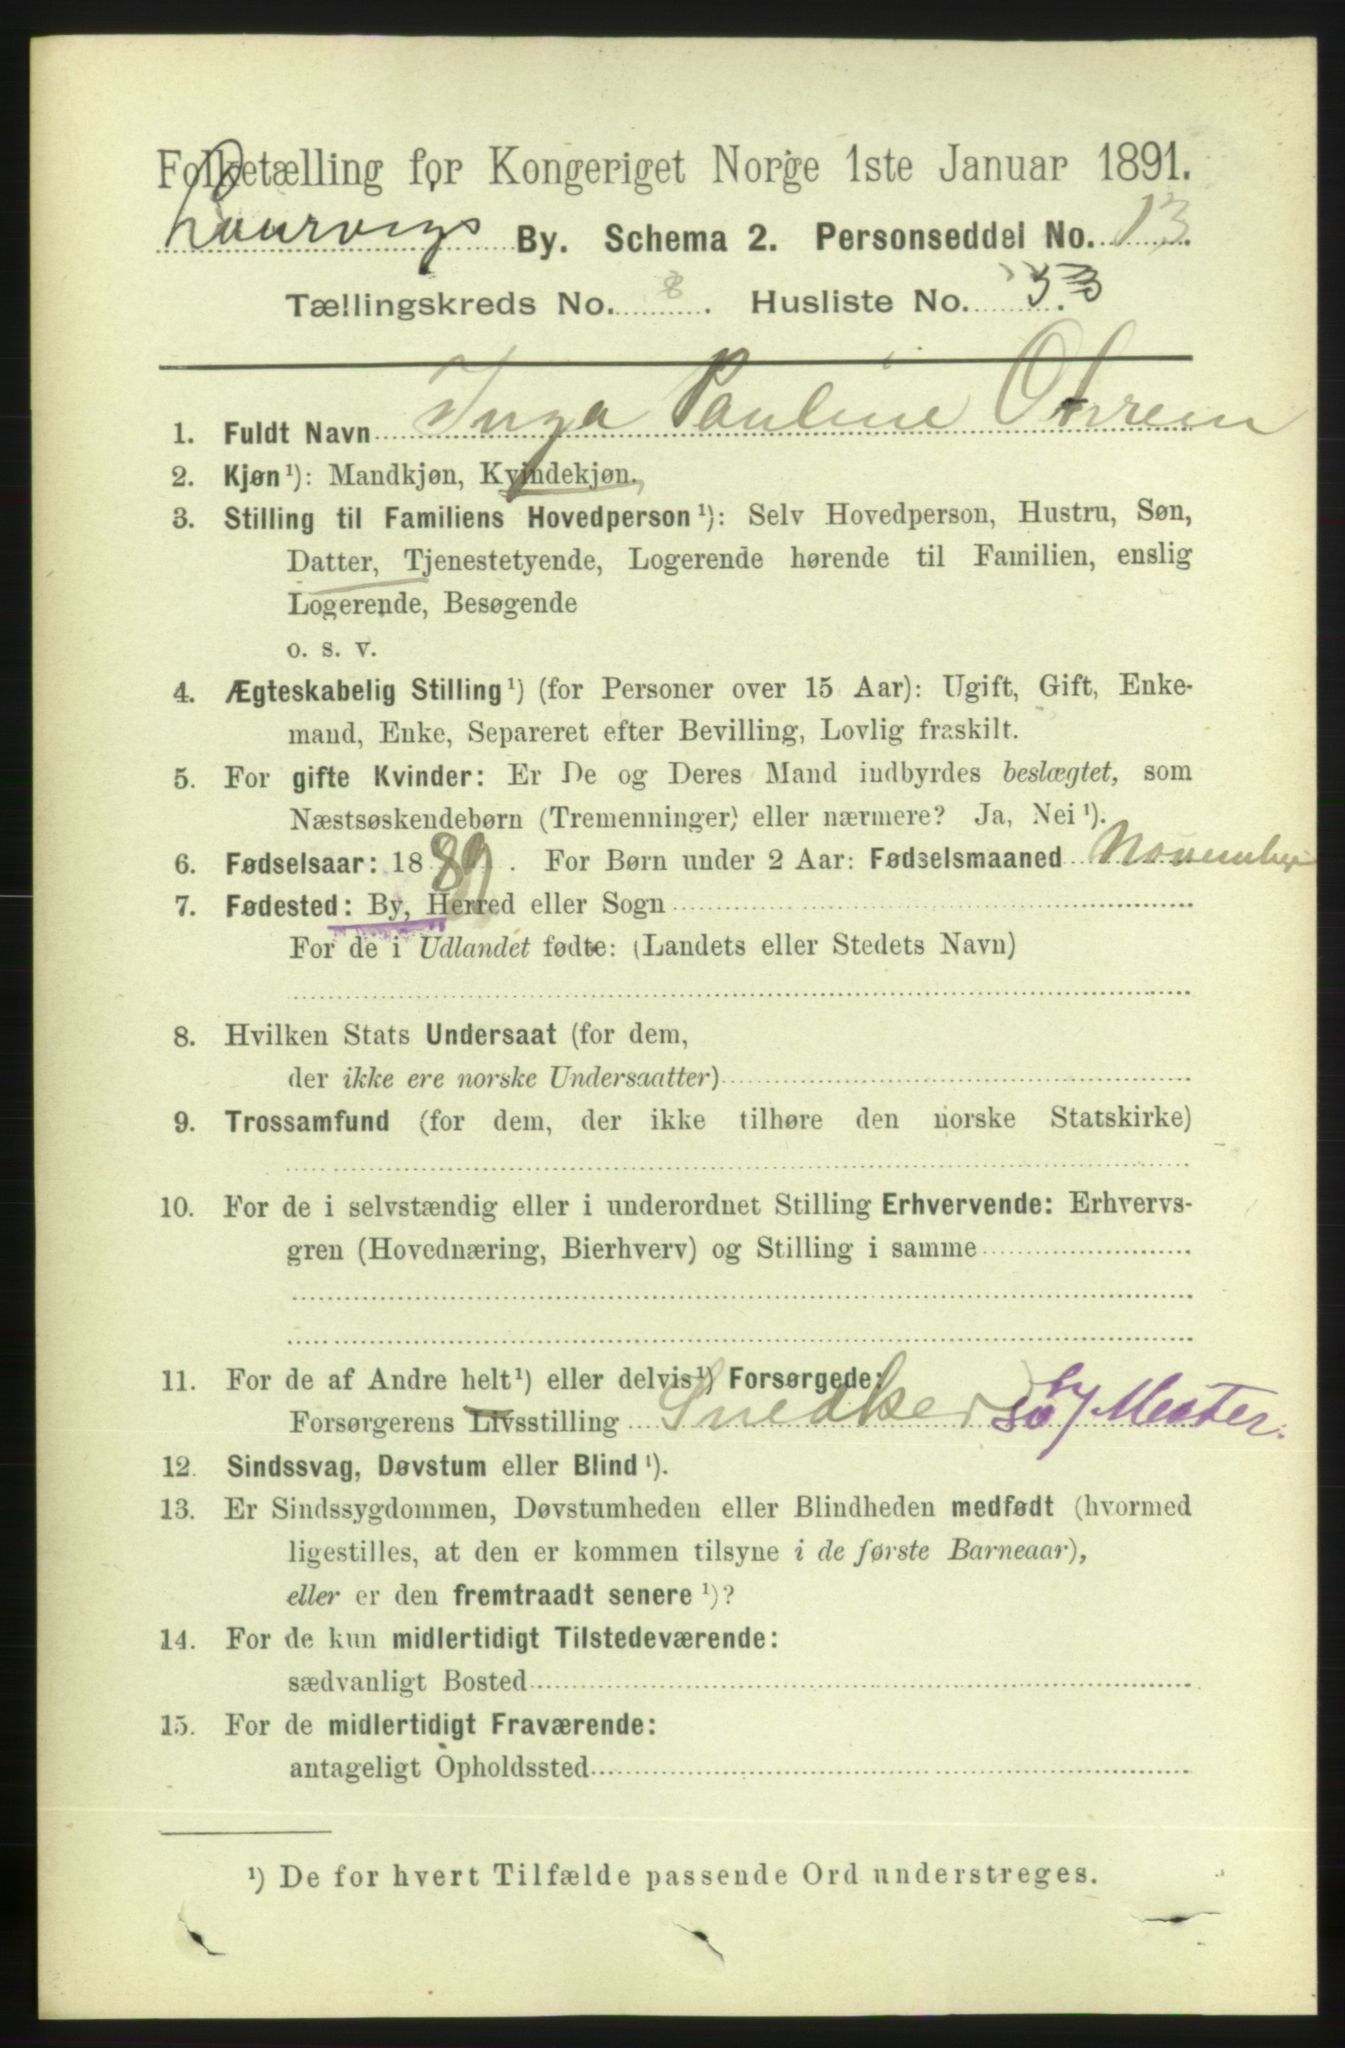 Folketælling for Kongeriget Norge 1ste Januar 1891.
Laurvigs By. Schema 2. Personseddel No. 13
Tællingskreds No. 8. Husliste No. 33
1. Fuldt Navn Inga Pauline
2. Kjøn¹): Mandkjøn, Kvindekjøn.
3. Stilling til Familiens Hovedperson¹): Selv Hovedperson, Hustru, Søn,
Datter, Tjenestetyende, Logerende hørende til Familien, enslig
Logerende, Besøgende
o. s. v.
4. Ægteskabelig Stilling¹) (for Personer over 15 Aar): Ugift, Gift, Enke-
mand, Enke, Separeret efter Bevilling, Lovlig fraskilt.
5. For gifte Kvinder: Er De og Deres Mand indbyrdes beslægtet, som
Næstsøskendebørn (Tremenninger) eller nærmere? Ja, Nei¹).
6. Fødselsaar: 1889. For Børn under 2 Aar: Fødselsmaaned November
7. Fødested: By, Herred eller Sogn
For de i Udlandet fødte: (Landets eller Stedets Navn)
8. Hvilken Stats Undersaat (for dem,
der ikke ere norske Undersaatter)
9. Trossamfund (for dem, der ikke tilhøre den norske Statskirke)
10. For de i selvstændig eller i underordnet Stilling Erhvervende: Erhvervs-
gren (Hovednæring, Bierhverv) og Stilling i samme
11. For de af Andre helt¹) eller delvis¹) Forsørgede:
Forsørgerens Livsstilling Snedker Mester.
12. Sindssvag, Døvstum eller Blind¹).
13. Er Sindssygdommen, Døvstumheden eller Blindheden medfødt (hvormed
ligestilles, at den er kommen tilsyne i de første Barneaar),
eller er den fremtraadt senere¹)?
14. For de kun midlertidigt Tilstedeværende:
sædvanligt Bosted
15. For de midlertidigt Fraværende:
antageligt Opholdssted
¹) De for hvert Tilfælde passende Ord understreges.